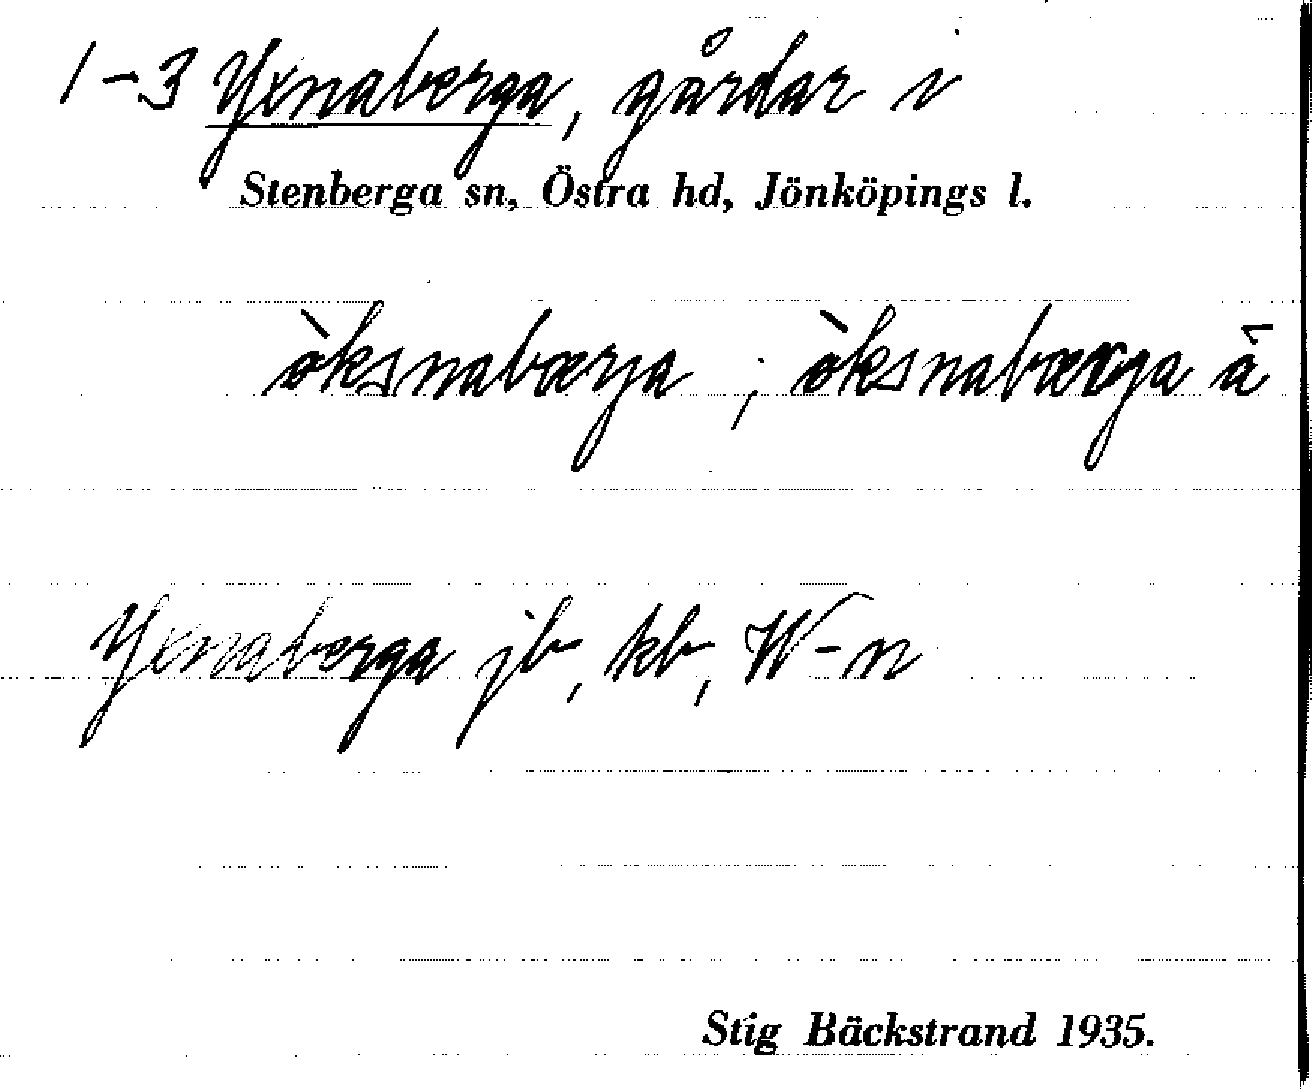 1-3 Yxnaberga, gårdar i
Stenberga sn, Östra hd, Jönköpings l.
òksnabærja ; òksnabærga â
Yxnaberga jb, kb, W-n
Stig Bäckstrand 1935.